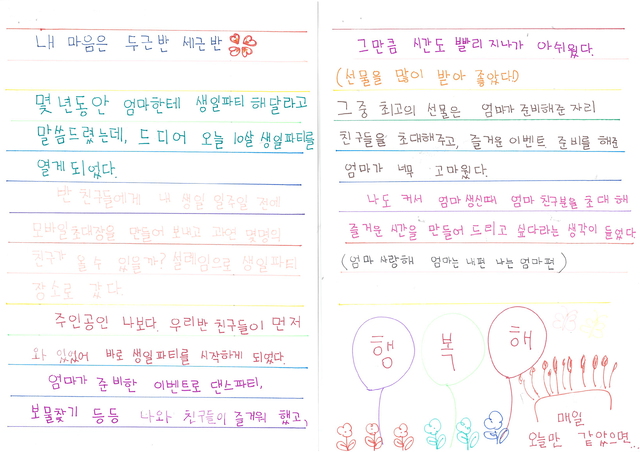 내 마음은 두근반 세근반
몇 년동안 엄마한테 생일파티 해달라고
말씀드렸는데, 드디어 오늘 10살 생일파티를
열게 되었다.
반 친구들에게 내 생일 일주일 전에
모바일초대장을 만들어 보내고 과연 몇명의
친구가 올 수 있을까? 설레임으로 생일파티
장소로 갔다.
주인공인 나보다. 우리반 친구들이 먼저
와 있었어 바로 생일파티를 시작하게 되었다.
엄마가 준비한 이벤트로 댄스파티,
보물찾기 등등 나와 친구들이 즐거워 했고,
그만큼 시간도 빨리 지나가 아쉬웠다.
(선물을 많이 받아 좋았다!)
그 중 최고의 선물은 엄마가 준비해준 자리
친구들을 초대해주고, 즐거운 이벤트 준비를 해준
엄마가 너무 고마웠다.
나도 커서 엄마 생신때 엄마 친구분을 초대해
즐거운 시간을 만들어 드리고 싶다라는 생각이 들었다
(엄마 사랑해 엄마는 내편 나는 엄마편)
행 복 해
매일
오늘만 같았으면...